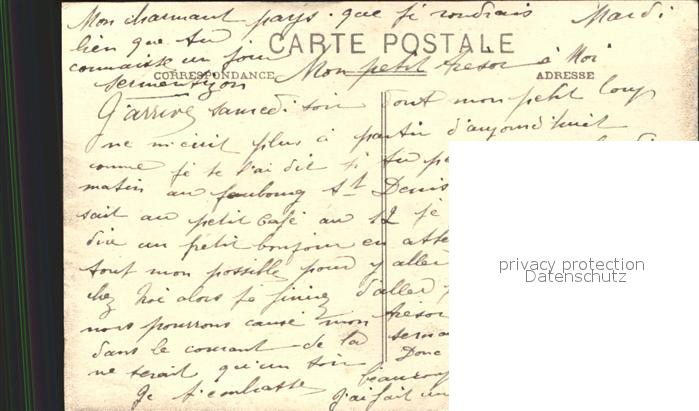 Mon charmant pays. que je voudrais
bien que tu
connaisse un jour
Sermentizon
Mardi
CARTE POSTALE
CORRESPONDANCE
ADRESSE
Mon petit trésor à Moi
J'arrive samedi soir dont mon petit loup
ne m'écrit plus à partir d'aujourd'huit
comme je te l'ai dit si tu pe
matin au faubourg St Denis
sait au petit café au 12 je
dire un petit bonjour en atte
tout mon possible pour y aller
chez Noé alors je d'aller
nous pourrons causé mon trésor
dans le courant de la sema
ne serait qu'un soir Donc
Je t'embrasse beaucoup
J'ai fait un
privacy protection
Datenschutz